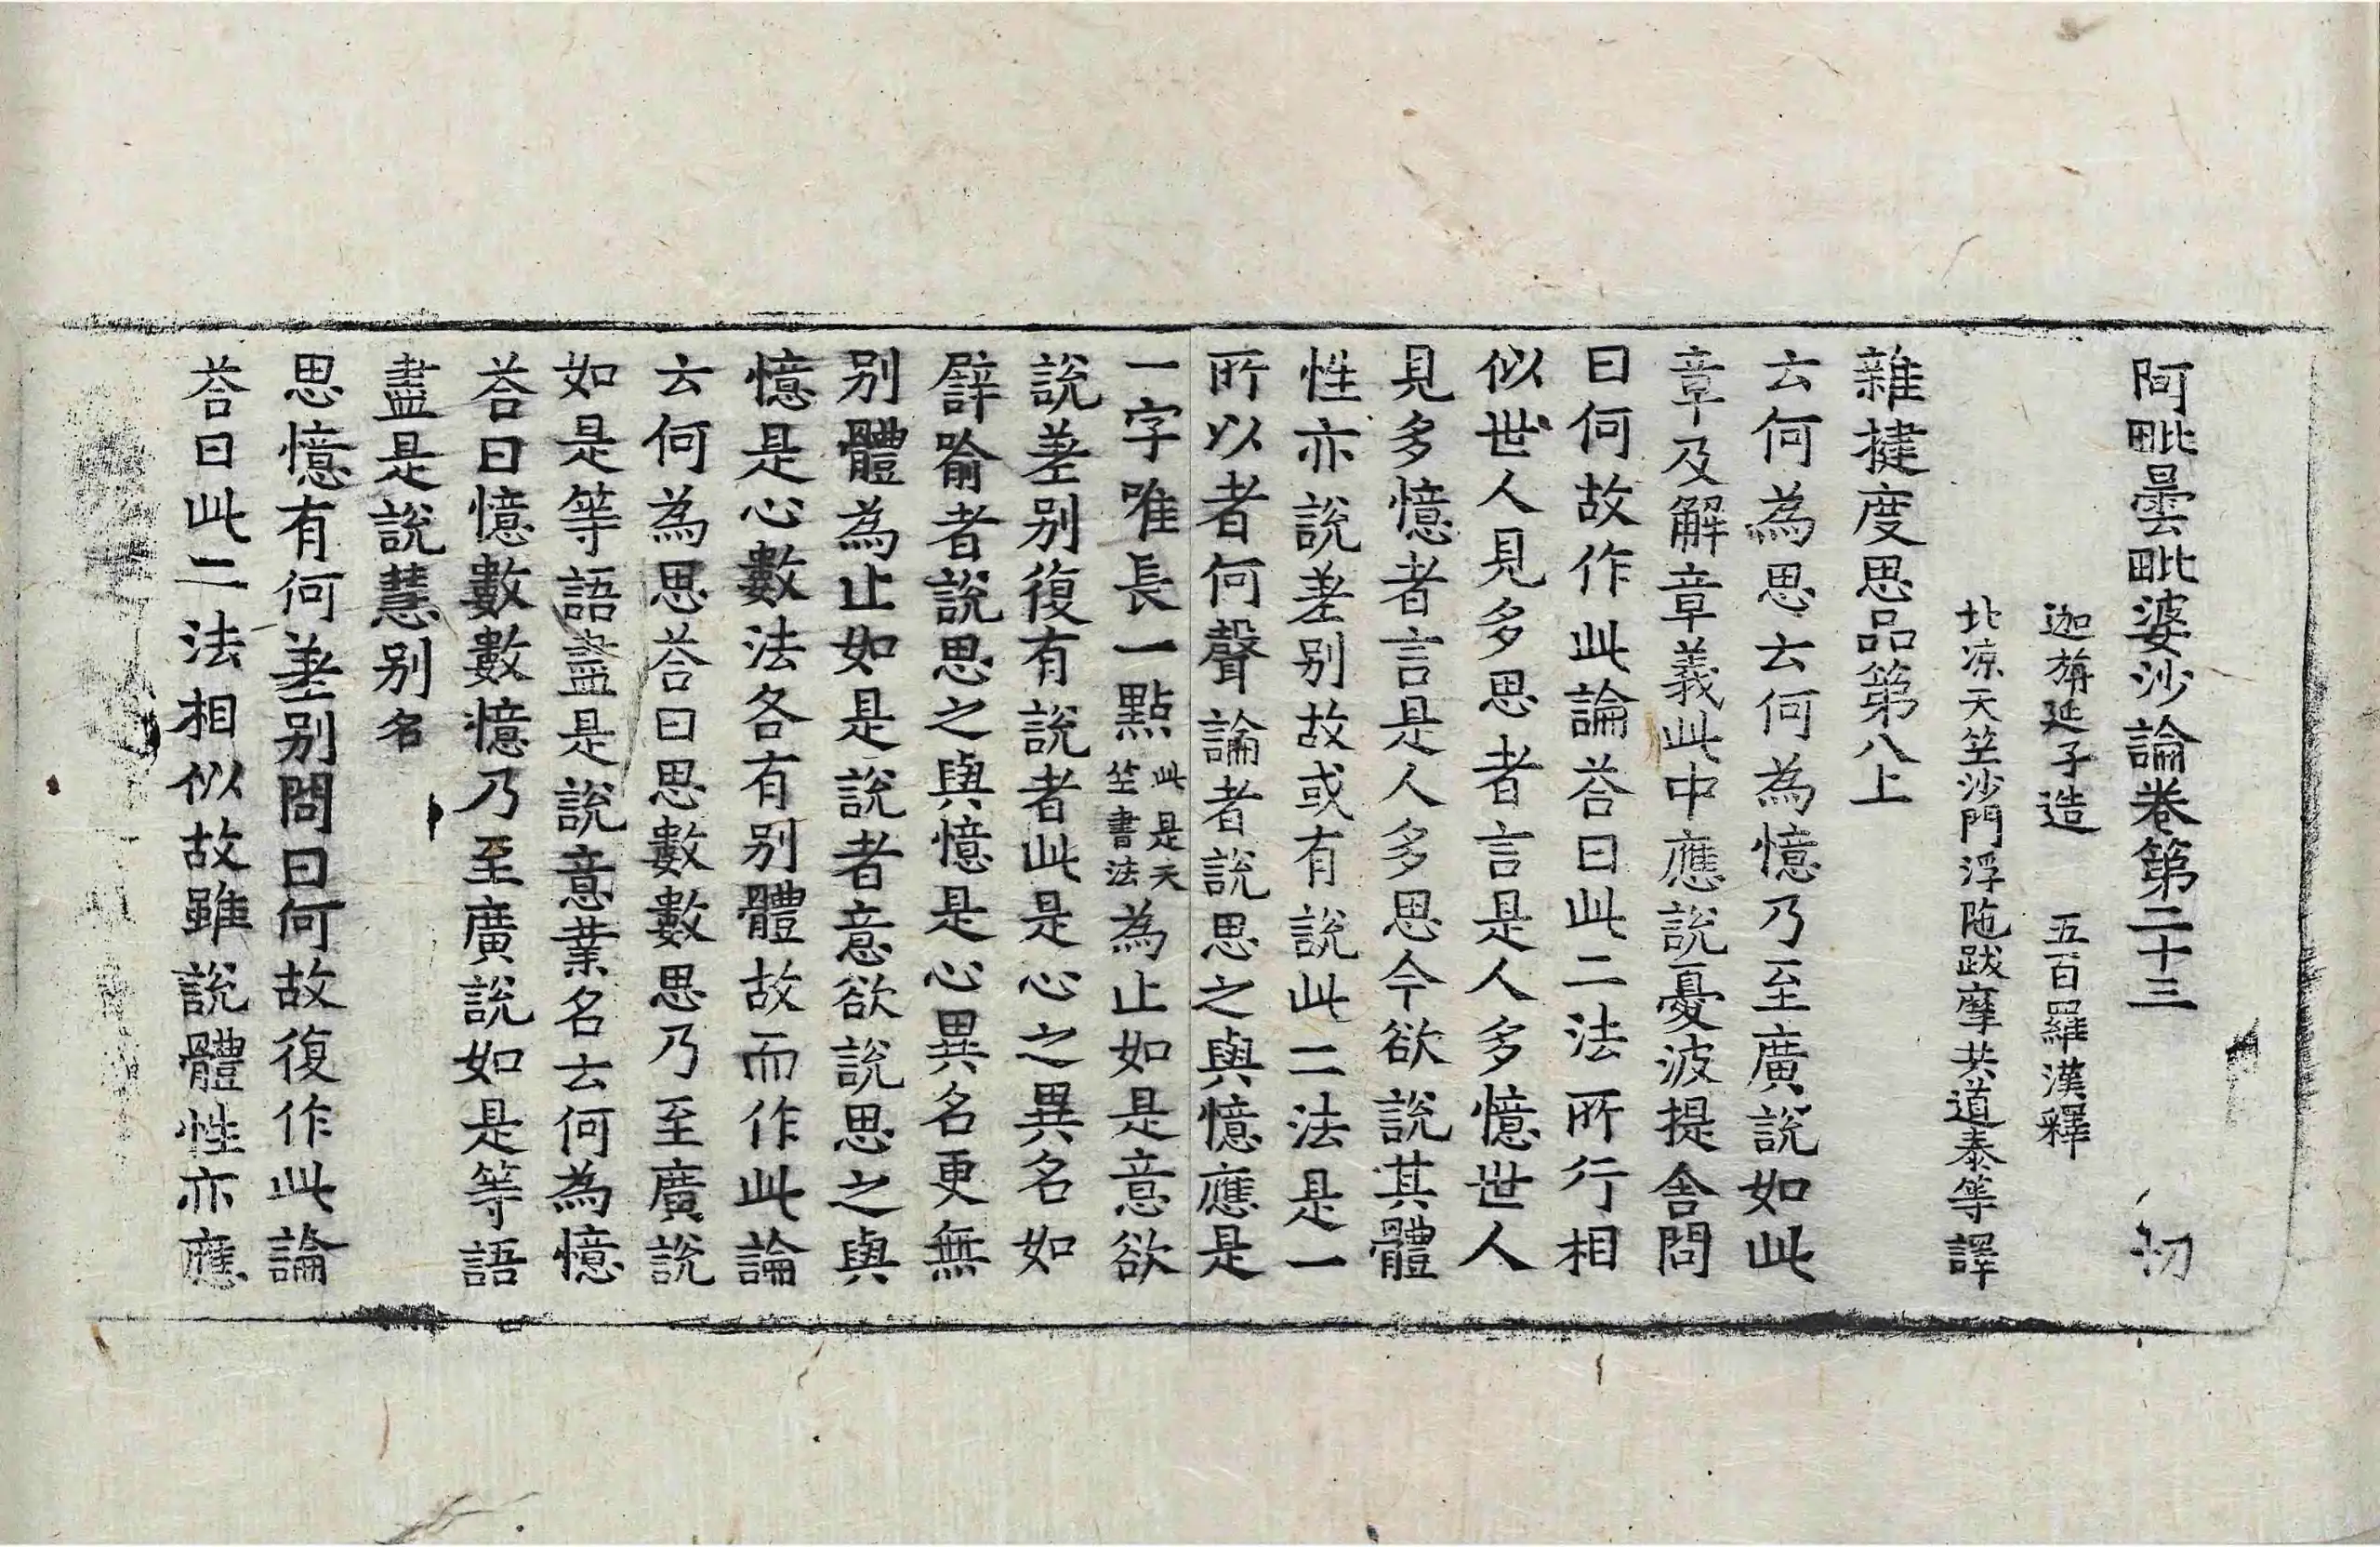 阿毗曇毗婆沙論卷第二十三 㓞
迦旃延子造 五百羅漢釋
北凉天竺沙門浮陁跋摩共道泰等譯
雜揵度思品第八上
云何為思云何為憶乃至廣說如此
章及解章義此中應說憂波提舍問
曰何故作此論荅曰此二法所行相
似世人見多思者言是人多憶世人
見多憶者言是人多思今欲說其體
性亦說差別故或有說此二法是一
所以者何聲論者說思之與憶應是
一字唯長一點此是天竺書法為止如是意欲
說差別復有說者此是心之異名如
譬喻者說思之與憶是心異名更無
別體為止如是說者意欲說思之與
憶是心數法各有別體故而作此論
云何為思荅曰思數數思乃至廣說
如是等語盡是說意業名云何為憶
荅曰憶數數憶乃至廣說如是等語
盡是說慧別名
思憶有何差別問曰何故復作此論
荅曰此二法相似故雖說體性亦應